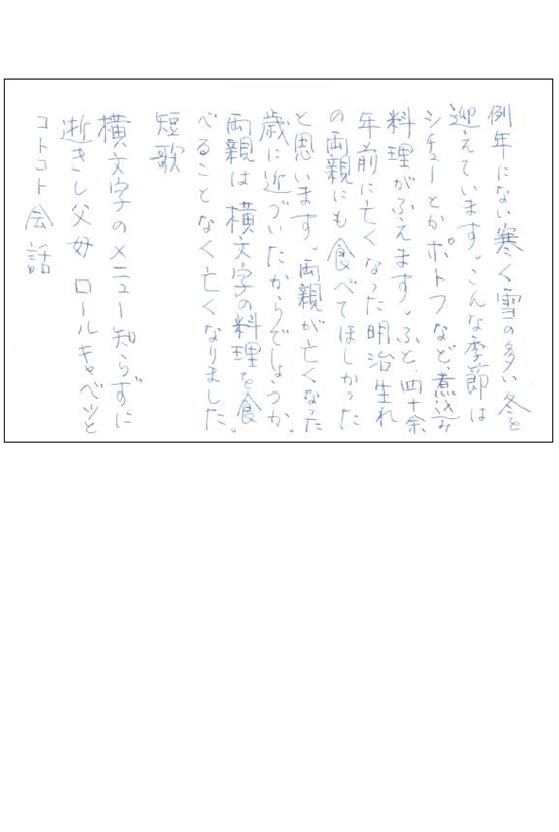 例年にない寒く雪の多い冬を
迎えています。こんな季節は
シチューとかポトフなど、煮込み
料理がふえます。ふと、四十余
年前に亡くなった明治生れ
の両親にも食べてほしかった
と思います。両親が亡くなった
歳に近づいたからでしょうか。
両親は横文字の料理を食
べることなく亡くなりました。
短歌
横文字のメニュー知らずに
逝きし父母 ロールキャベツと
コトコト会話